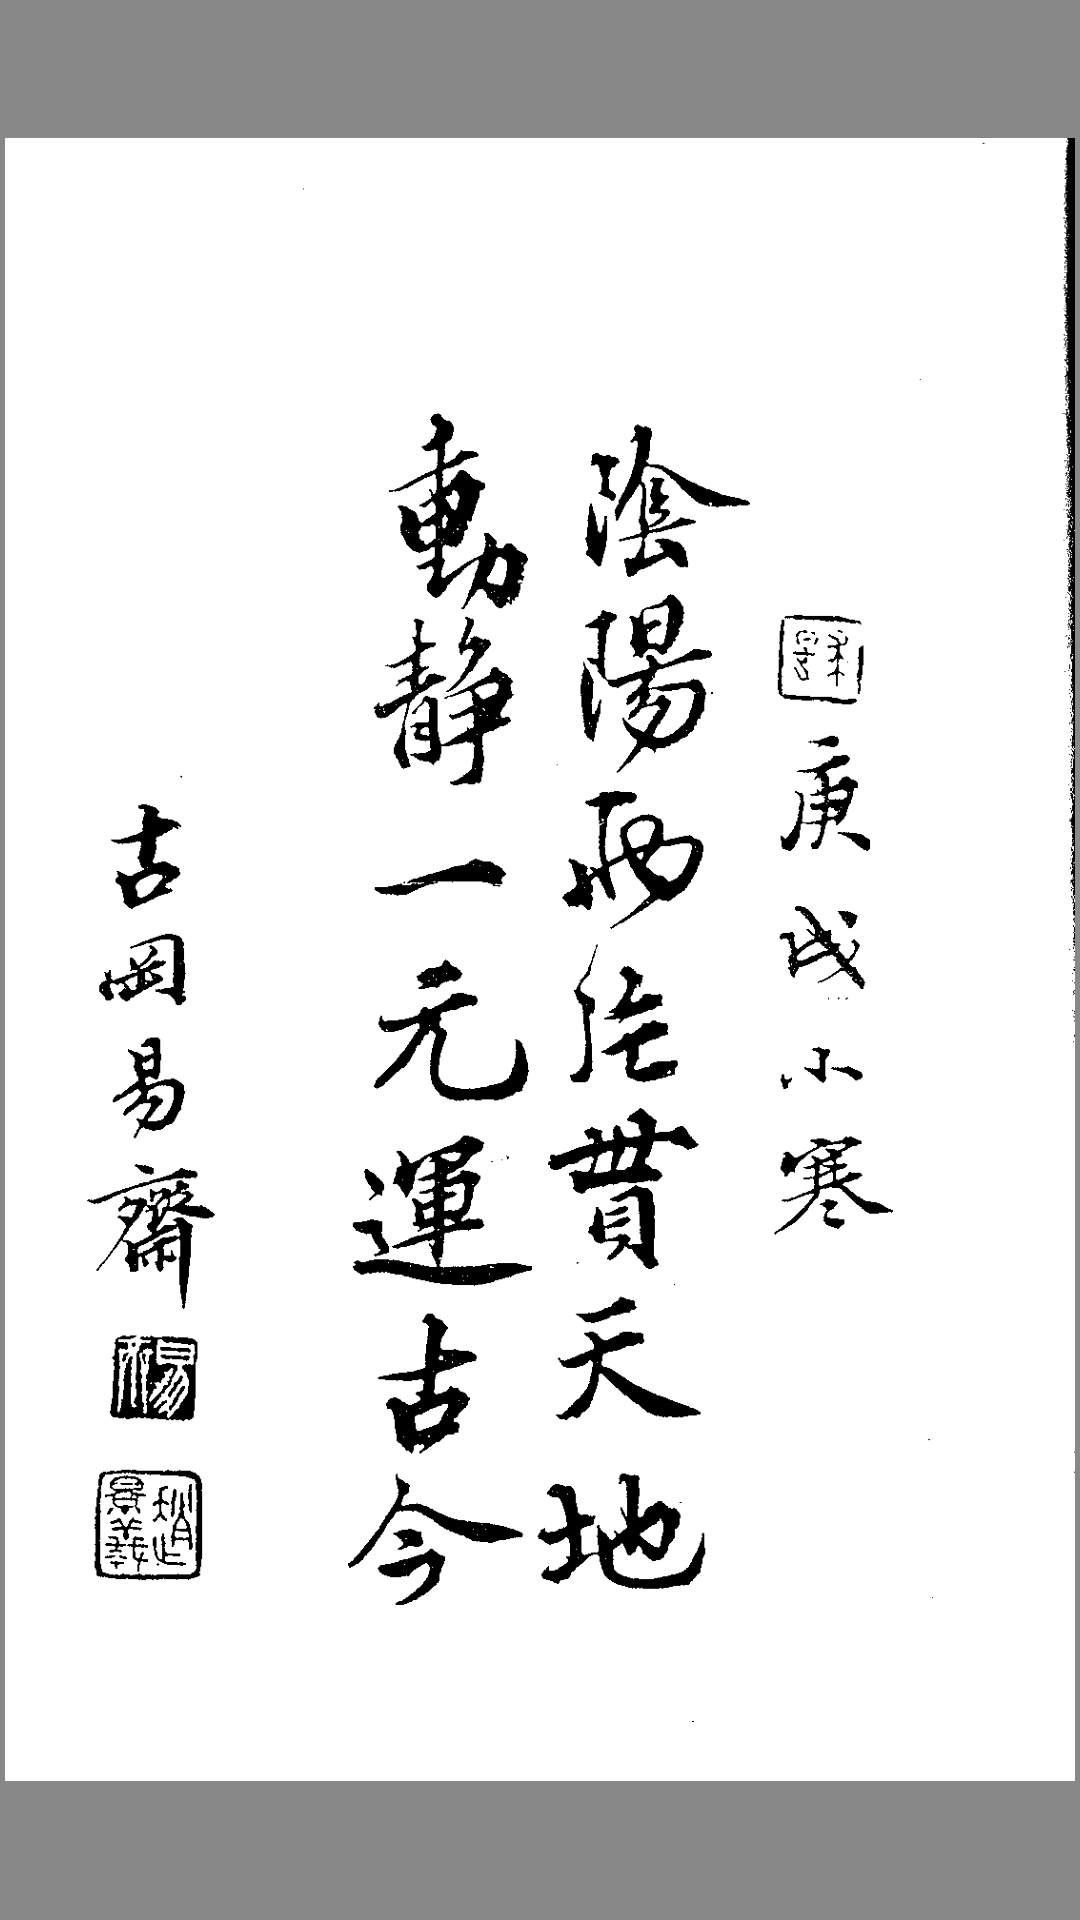 庚戌小寒
陰陽兩貫天地
動靜一元運古今
古岡易齋
易齋